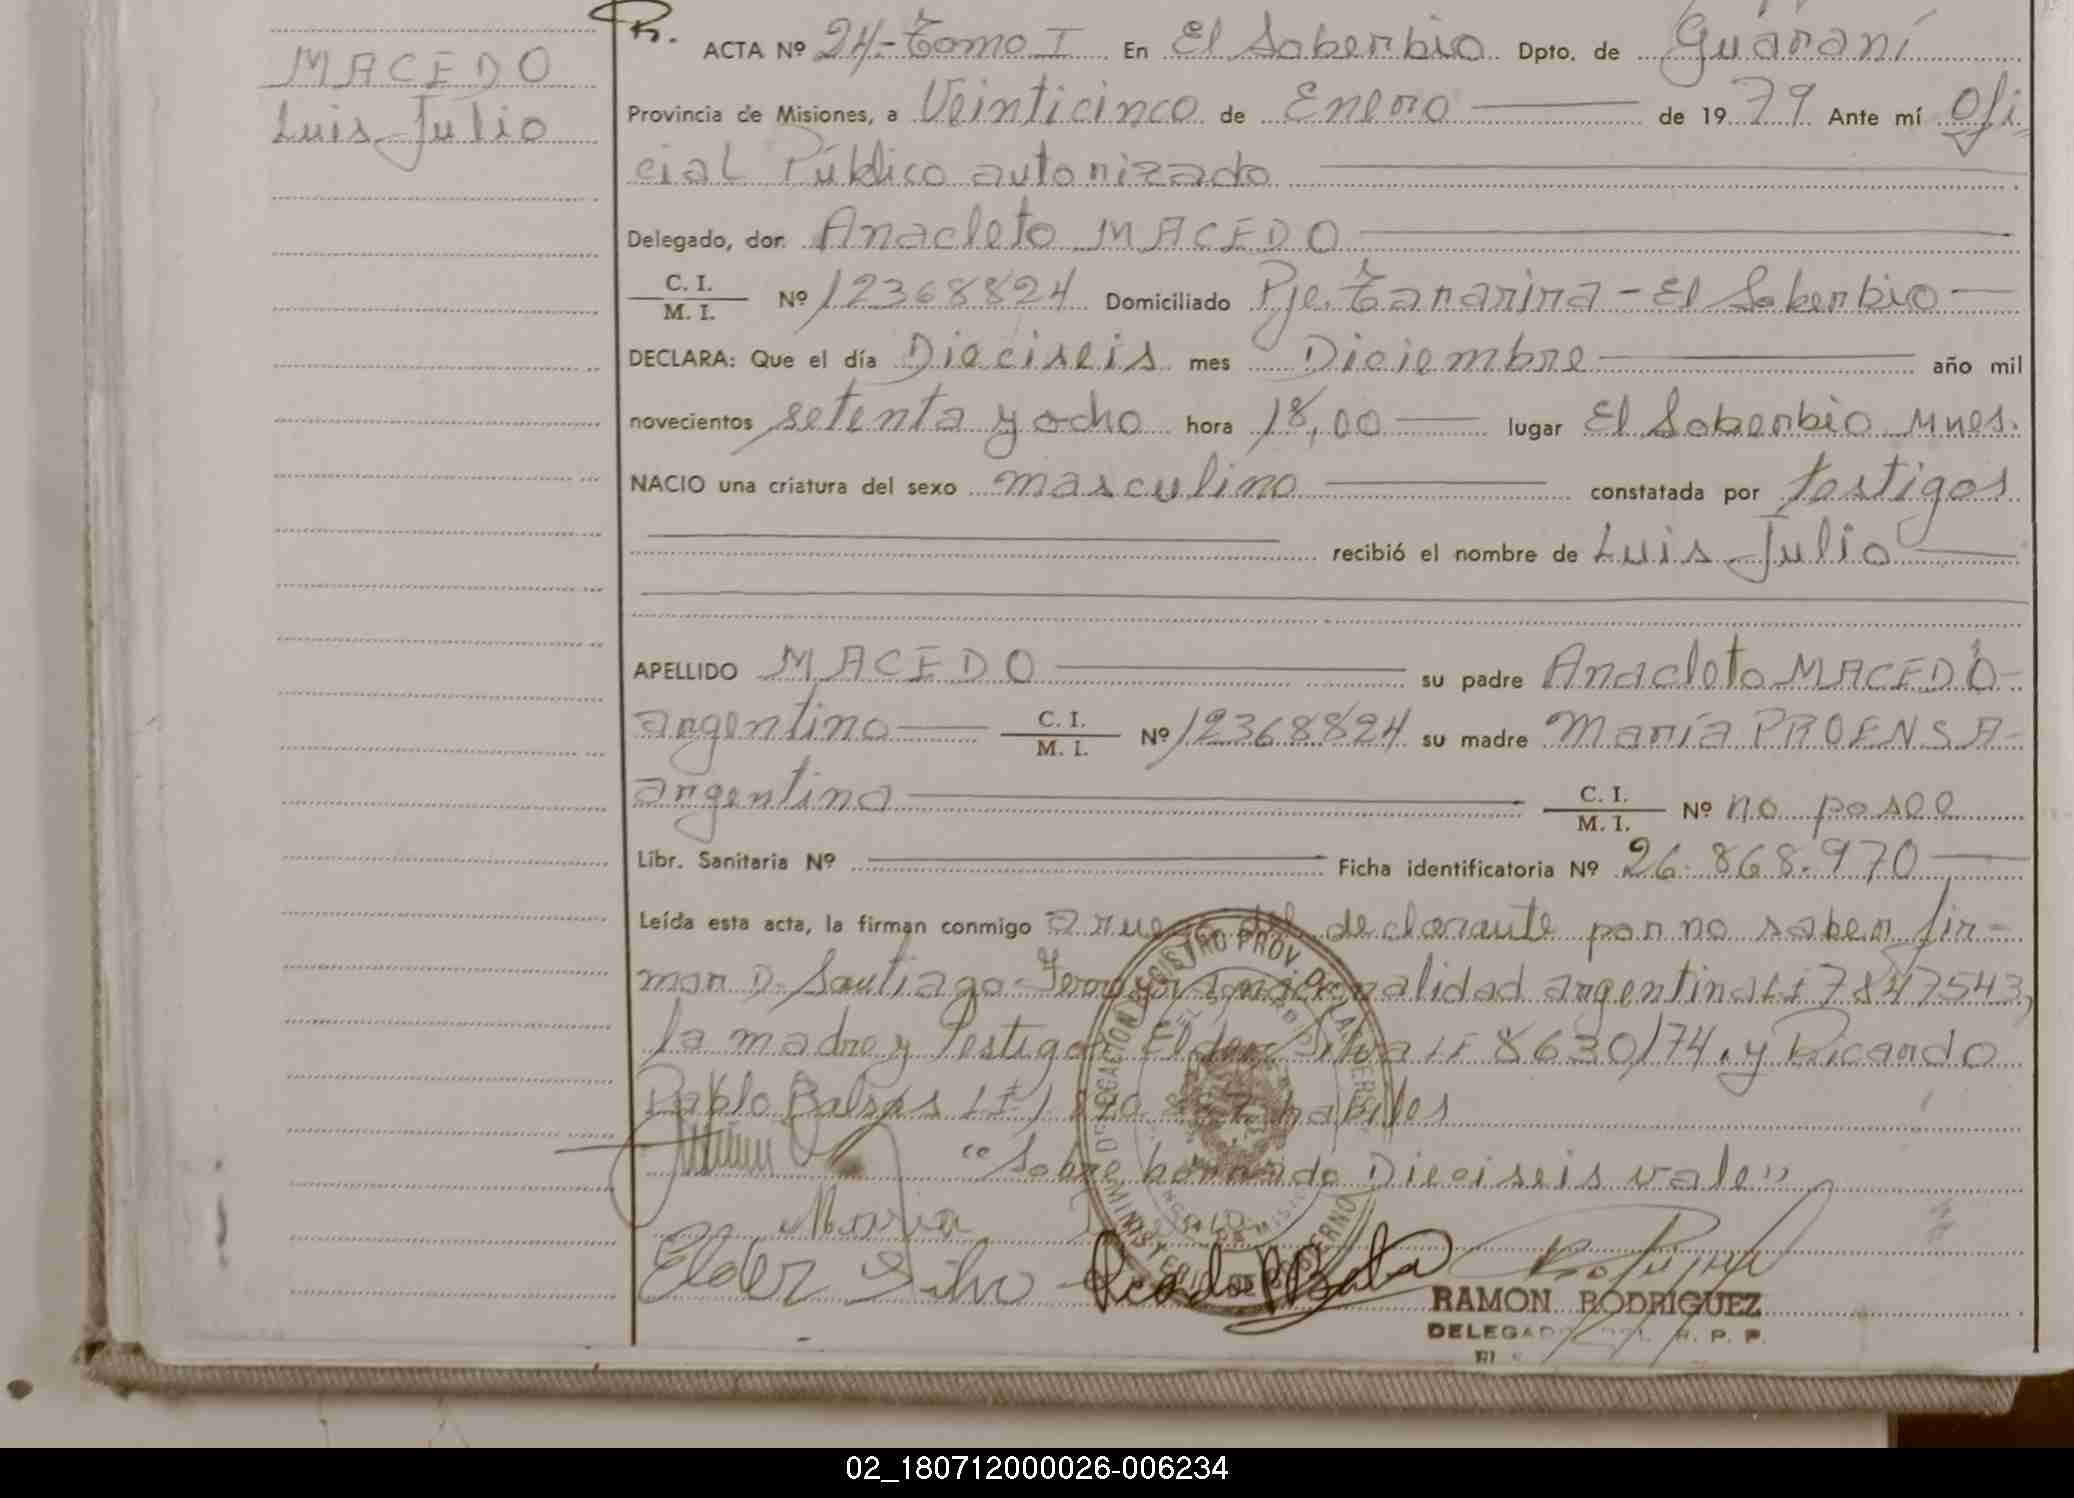 MACEDO
Luis Julio
ACTA Nº 24-Tomo I En El Soberbio Dpto. de Guaraní
Provincia de Misiones, a Veinticinco de Enero de 1979 Ante mí Ofi-
cial Público autorizado
Delegado, don Anacleto MACEDO
C. I. / M. I. Nº 12368824 Domiciliado Pje. Tananina - El Soberbio
DECLARA: Que el día Dieciseis mes Diciembre año mil
novecientos setenta y ocho hora 18,00 lugar El Soberbio Mnes.
NACIO una criatura del sexo masculino constatada por testigos
recibió el nombre de Luis Julio
APELLIDO MACEDO su padre Anacleto MACEDO
argentino C. I. / M. I. Nº 12368824 su madre María PROENSA
argentina C. I. / M. I. Nº no posee
Libr. Sanitaria Nº Ficha identificatoria Nº 26.868.970
Leída esta acta, la firman conmigo a ruego del declarante por no saber fir-
mar D. Santiago nacionalidad argentina LE 7847543,
la madre y testigos Elder Silva LE 8630174. y Ricardo
Pablo habiles
"Sobre borrado Dieciseis vale"
Maria
Elder Silva
RAMON RODRIGUEZ
DELEGADO DEL R. P. P.
DELEGACION REGISTRO PROV. DE LAS PERS
MINISTERIO DE GOBIERNO
02_180712000026-006234